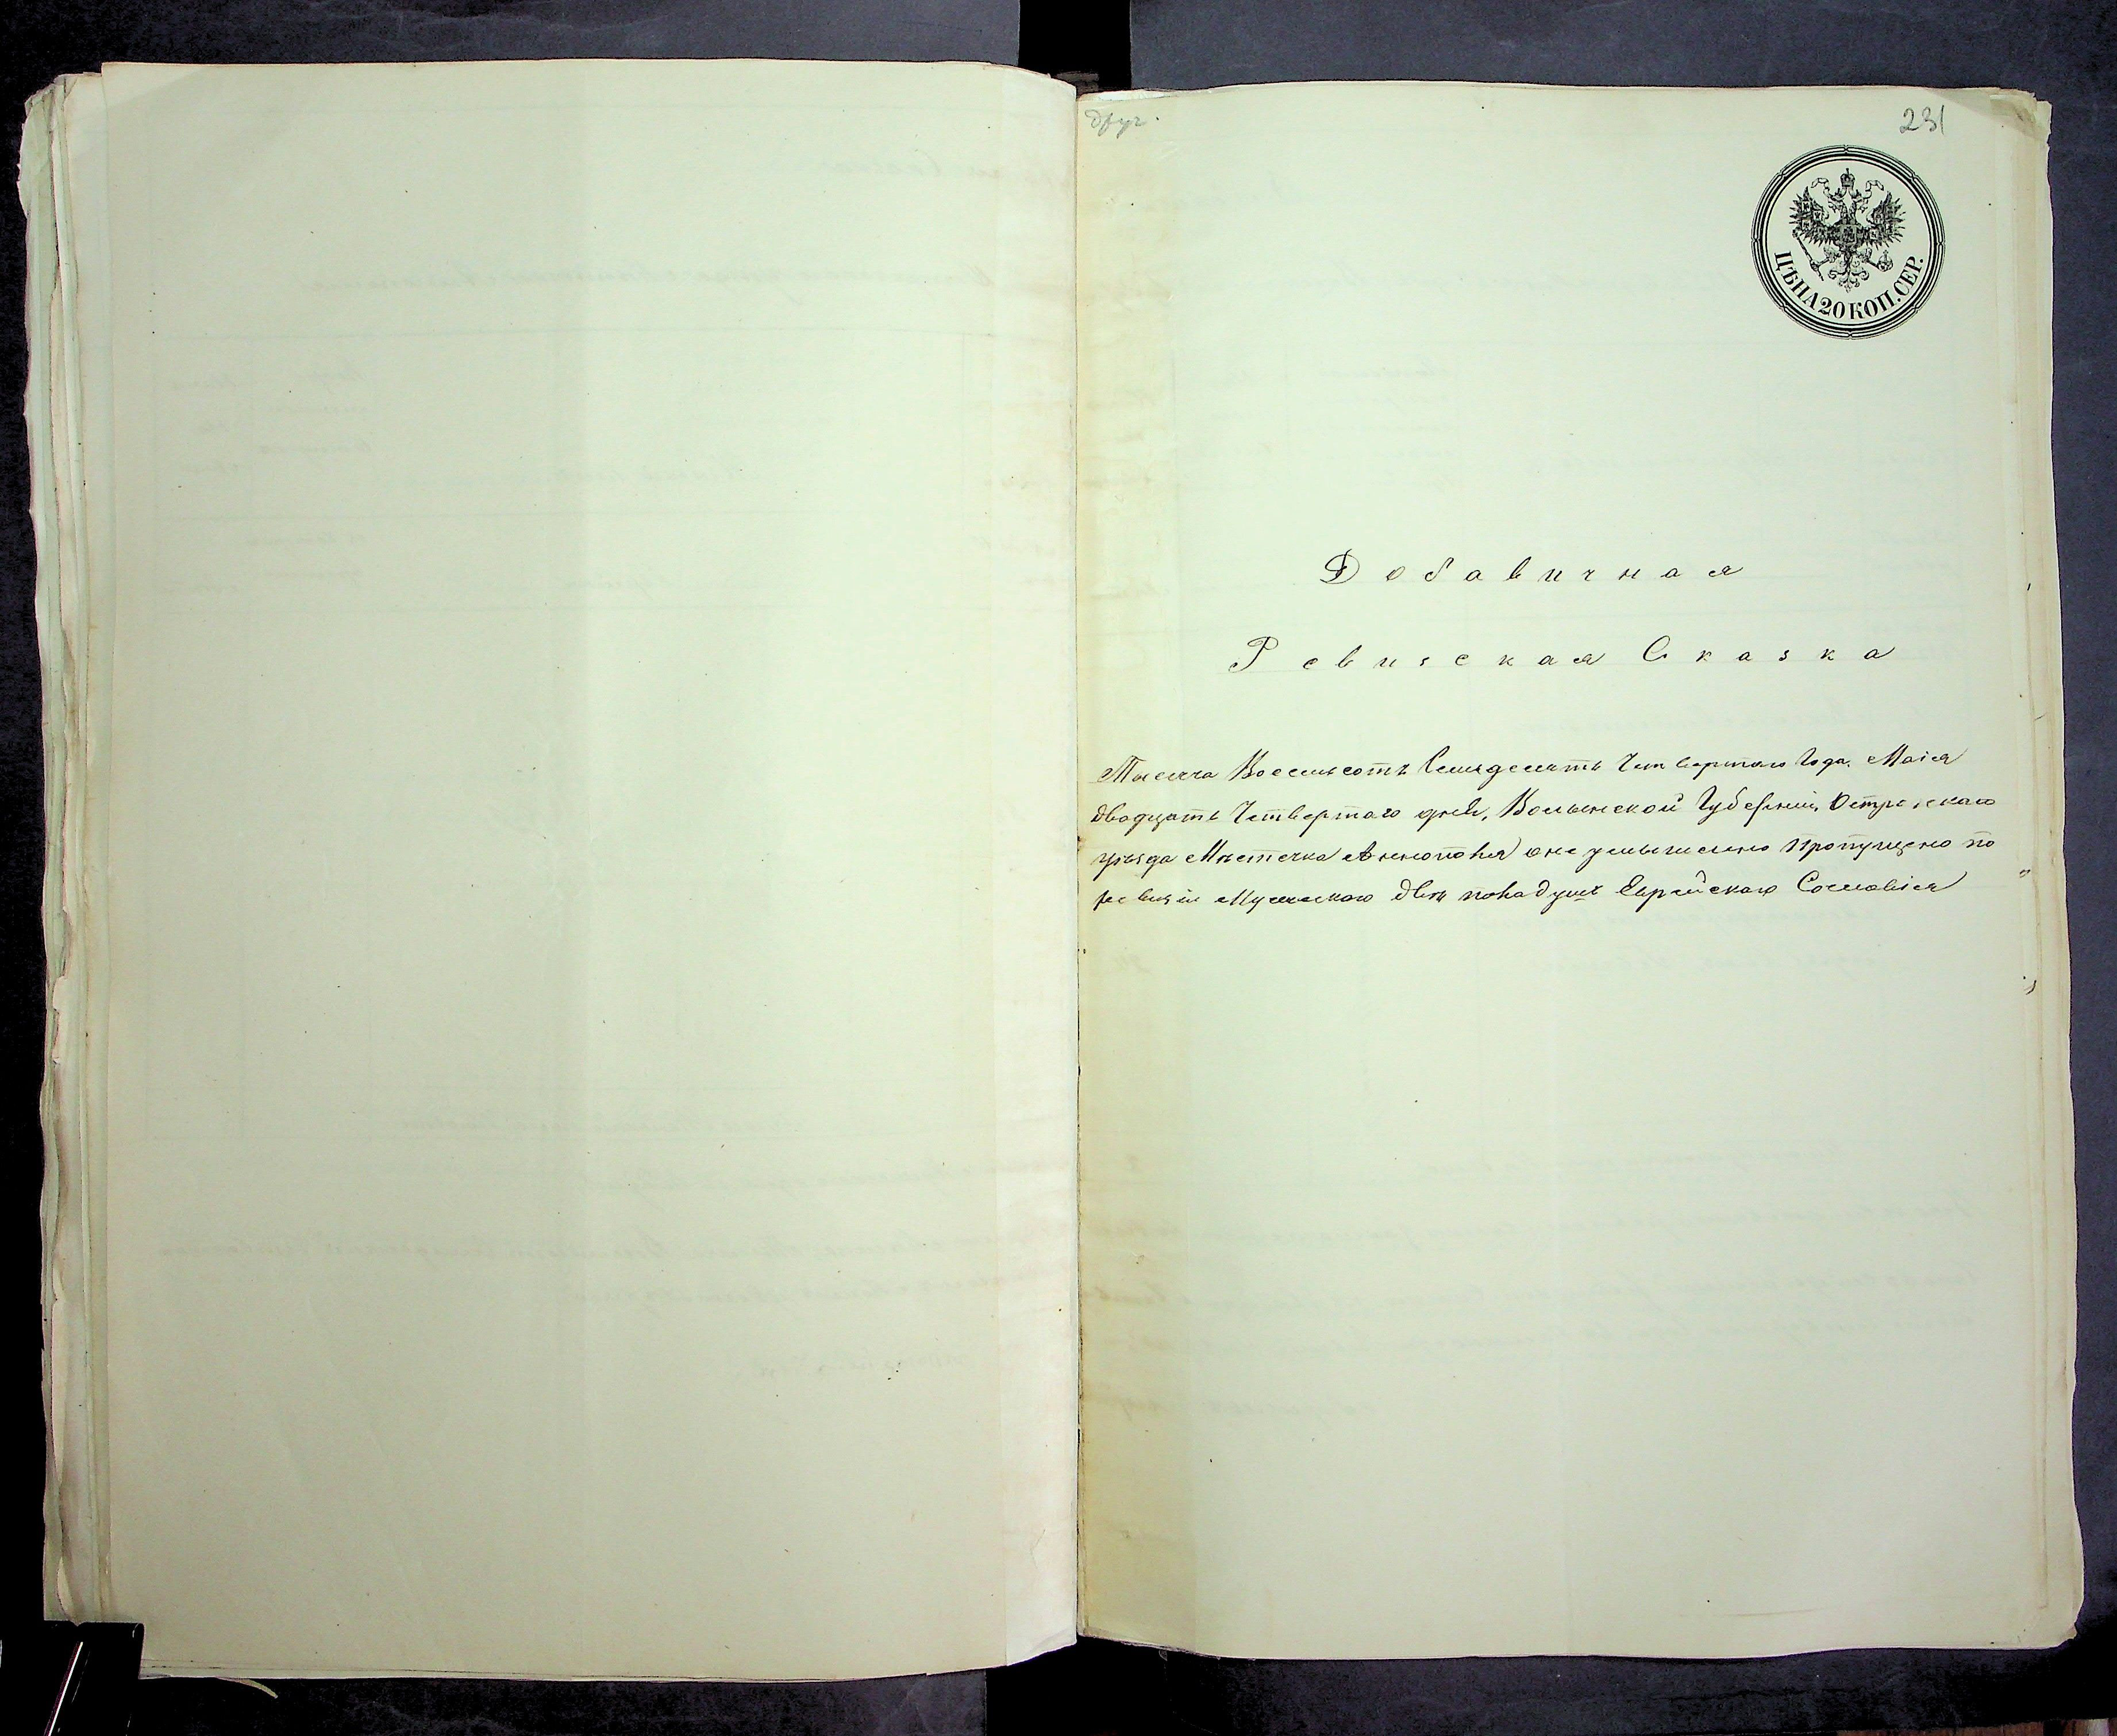 друг.
231
ЦѢНА 20 КОП. СЕР.
Добавичная
Ревизская Сказка
Тысяча Восемьсотъ Семьдесятъ Четвертаго Года. Маія
двадцать Четвертаго дня, Волынской Губерніи, Острожскаго
уѣзда Мѣстечка Аннополя о не умышленно пропущено по
ревизіи Мужескаго двѣ Еврейскаго Сословія